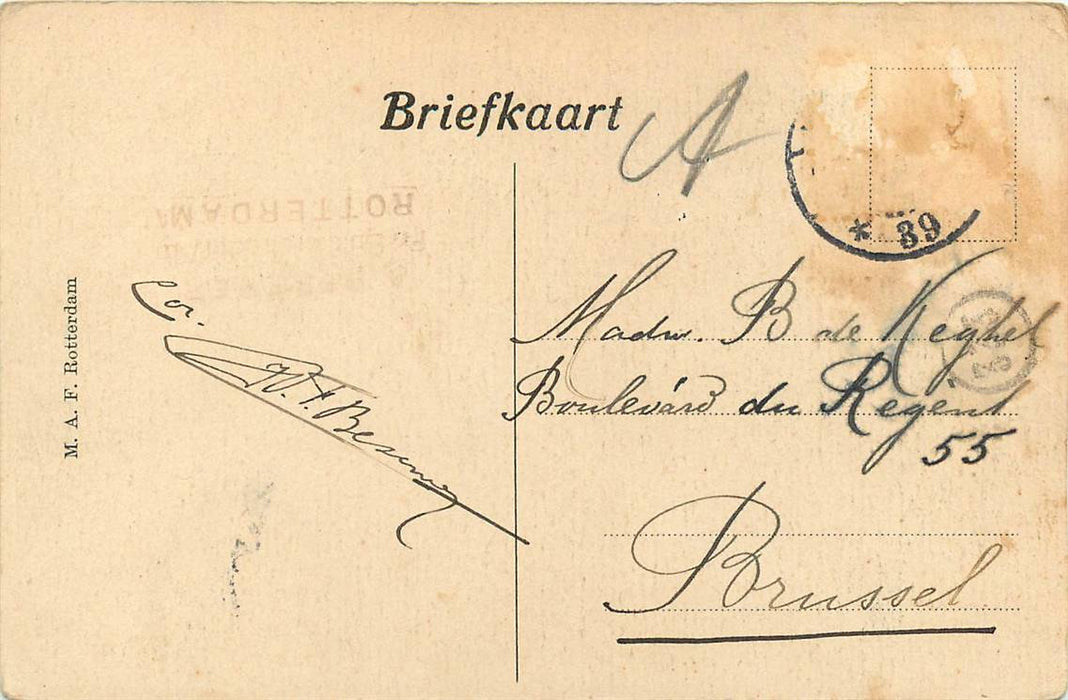 Briefkaart
A
* 39
ROTTERDAM
Cor.
M. A. F. Rotterdam
Madw. B de Keghel
Boulevard du Regent
55
Brussel